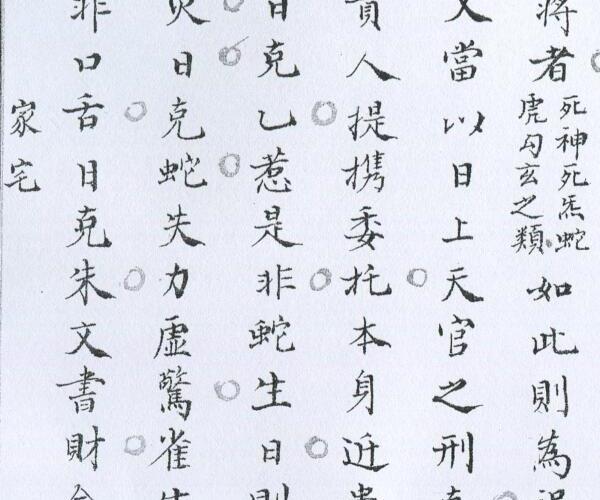 將者死神死炁蛇虎勾玄之類如此則為
又當以日上天官之刑
貴人提携委托本身近貴
日克乙惹是非蛇生日則
災日克蛇失力虛驚雀生
非口舌日克朱文書財
家宅